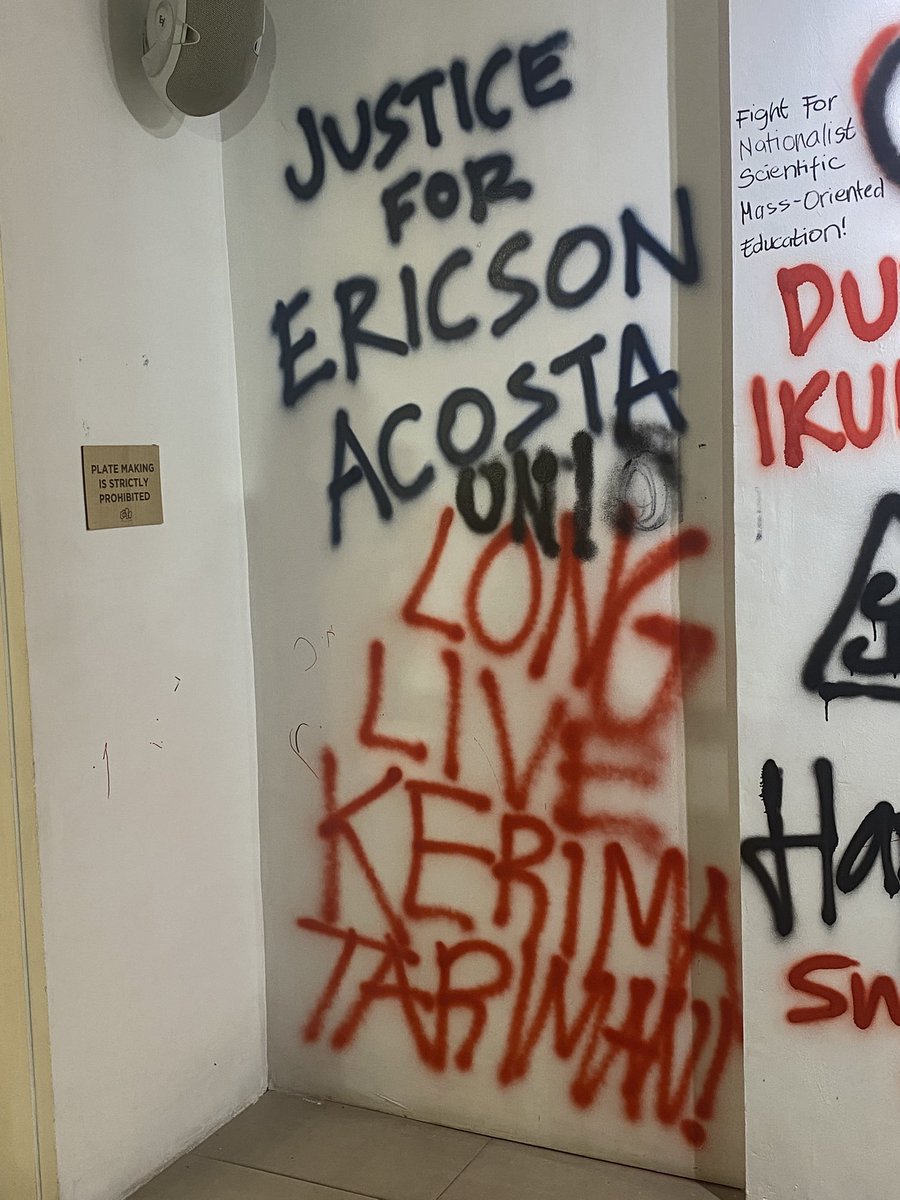 JUSTICE
FOR
ERICSON
ACOSTA
LONG
LIVE
KERIMA
TARIMAN!
PLATE MAKING
IS STRICTLY
PROHIBITED
Fight For
Nationalist
Scientific
Mass-Oriented
Education!
DU
IKU
Ha